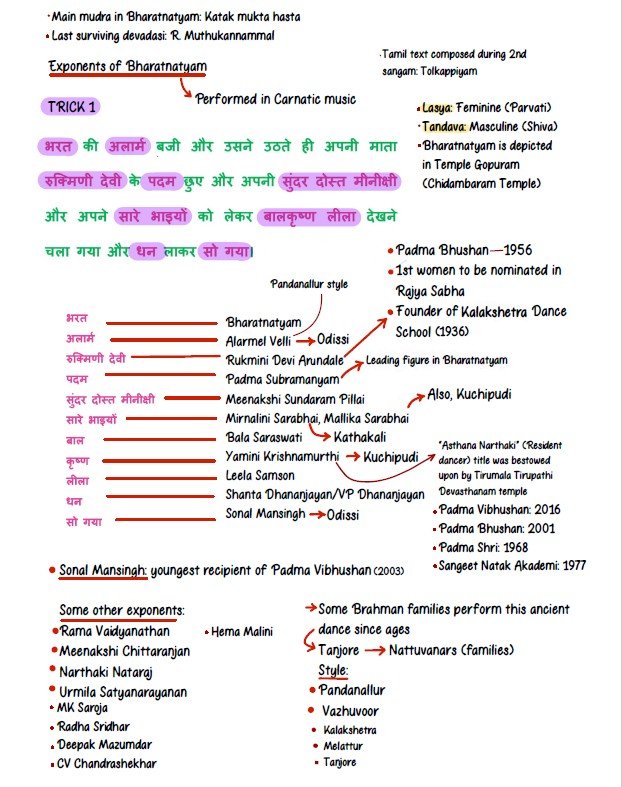 • Main mudra in Bharatnatyam: Katak mukta hasta
• Last surviving devadasi: R. Muthukannammal
Exponents of Bharatnatyam
→ Performed in Carnatic music
• Tamil text composed during 2nd
sangam: Tolkappiyam
TRICK 1
भरत की अलार्म बजी और उसने उठते ही अपनी माता
रुक्मिणी देवी के पदम छुए और अपनी सुंदर दोस्त मीनीक्षी
और अपने सारे भाइयों को लेकर बालकृष्ण लीला देखने
चला गया और धन लाकर सो गया।
• Lasya: Feminine (Parvati)
• Tandava: Masculine (Shiva)
• Bharatnatyam is depicted
in Temple Gopuram
(Chidambaram Temple)
• Padma Bhushan—1956
• 1st women to be nominated in
Rajya Sabha
• Founder of Kalakshetra Dance
School (1936)
Pandanallur style
भरत Bharatnatyam
अलार्म Alarmel Velli → Odissi
रुक्मिणी देवी Rukmini Devi Arundale
पदम Padma Subramanyam → Leading figure in Bharatnatyam
सुंदर दोस्त मीनीक्षी Meenakshi Sundaram Pillai
सारे भाइयों Mirnalini Sarabhai, Mallika Sarabhai → Also, Kuchipudi
→ Kathakali
बाल Bala Saraswati
कृष्ण Yamini Krishnamurthi → Kuchipudi
लीला Leela Samson
धन Shanta Dhananjayan/VP Dhananjayan
सो गया Sonal Mansingh → Odissi
"Asthana Narthaki" (Resident
dancer) title was bestowed
upon by Tirumala Tirupathi
Devasthanam temple
• Padma Vibhushan: 2016
• Padma Bhushan: 2001
• Padma Shri: 1968
• Sangeet Natak Akademi: 1977
• Sonal Mansingh: youngest recipient of Padma Vibhushan (2003)
Some other exponents:
• Rama Vaidyanathan
• Meenakshi Chittaranjan
• Narthaki Nataraj
• Urmila Satyanarayanan
• MK Saroja
• Radha Sridhar
• Deepak Mazumdar
• CV Chandrashekhar
• Hema Malini
→ Some Brahman families perform this ancient
dance since ages
→ Tanjore → Nattuvanars (families)
Style:
• Pandanallur
• Vazhuvoor
• Kalakshetra
• Melattur
• Tanjore